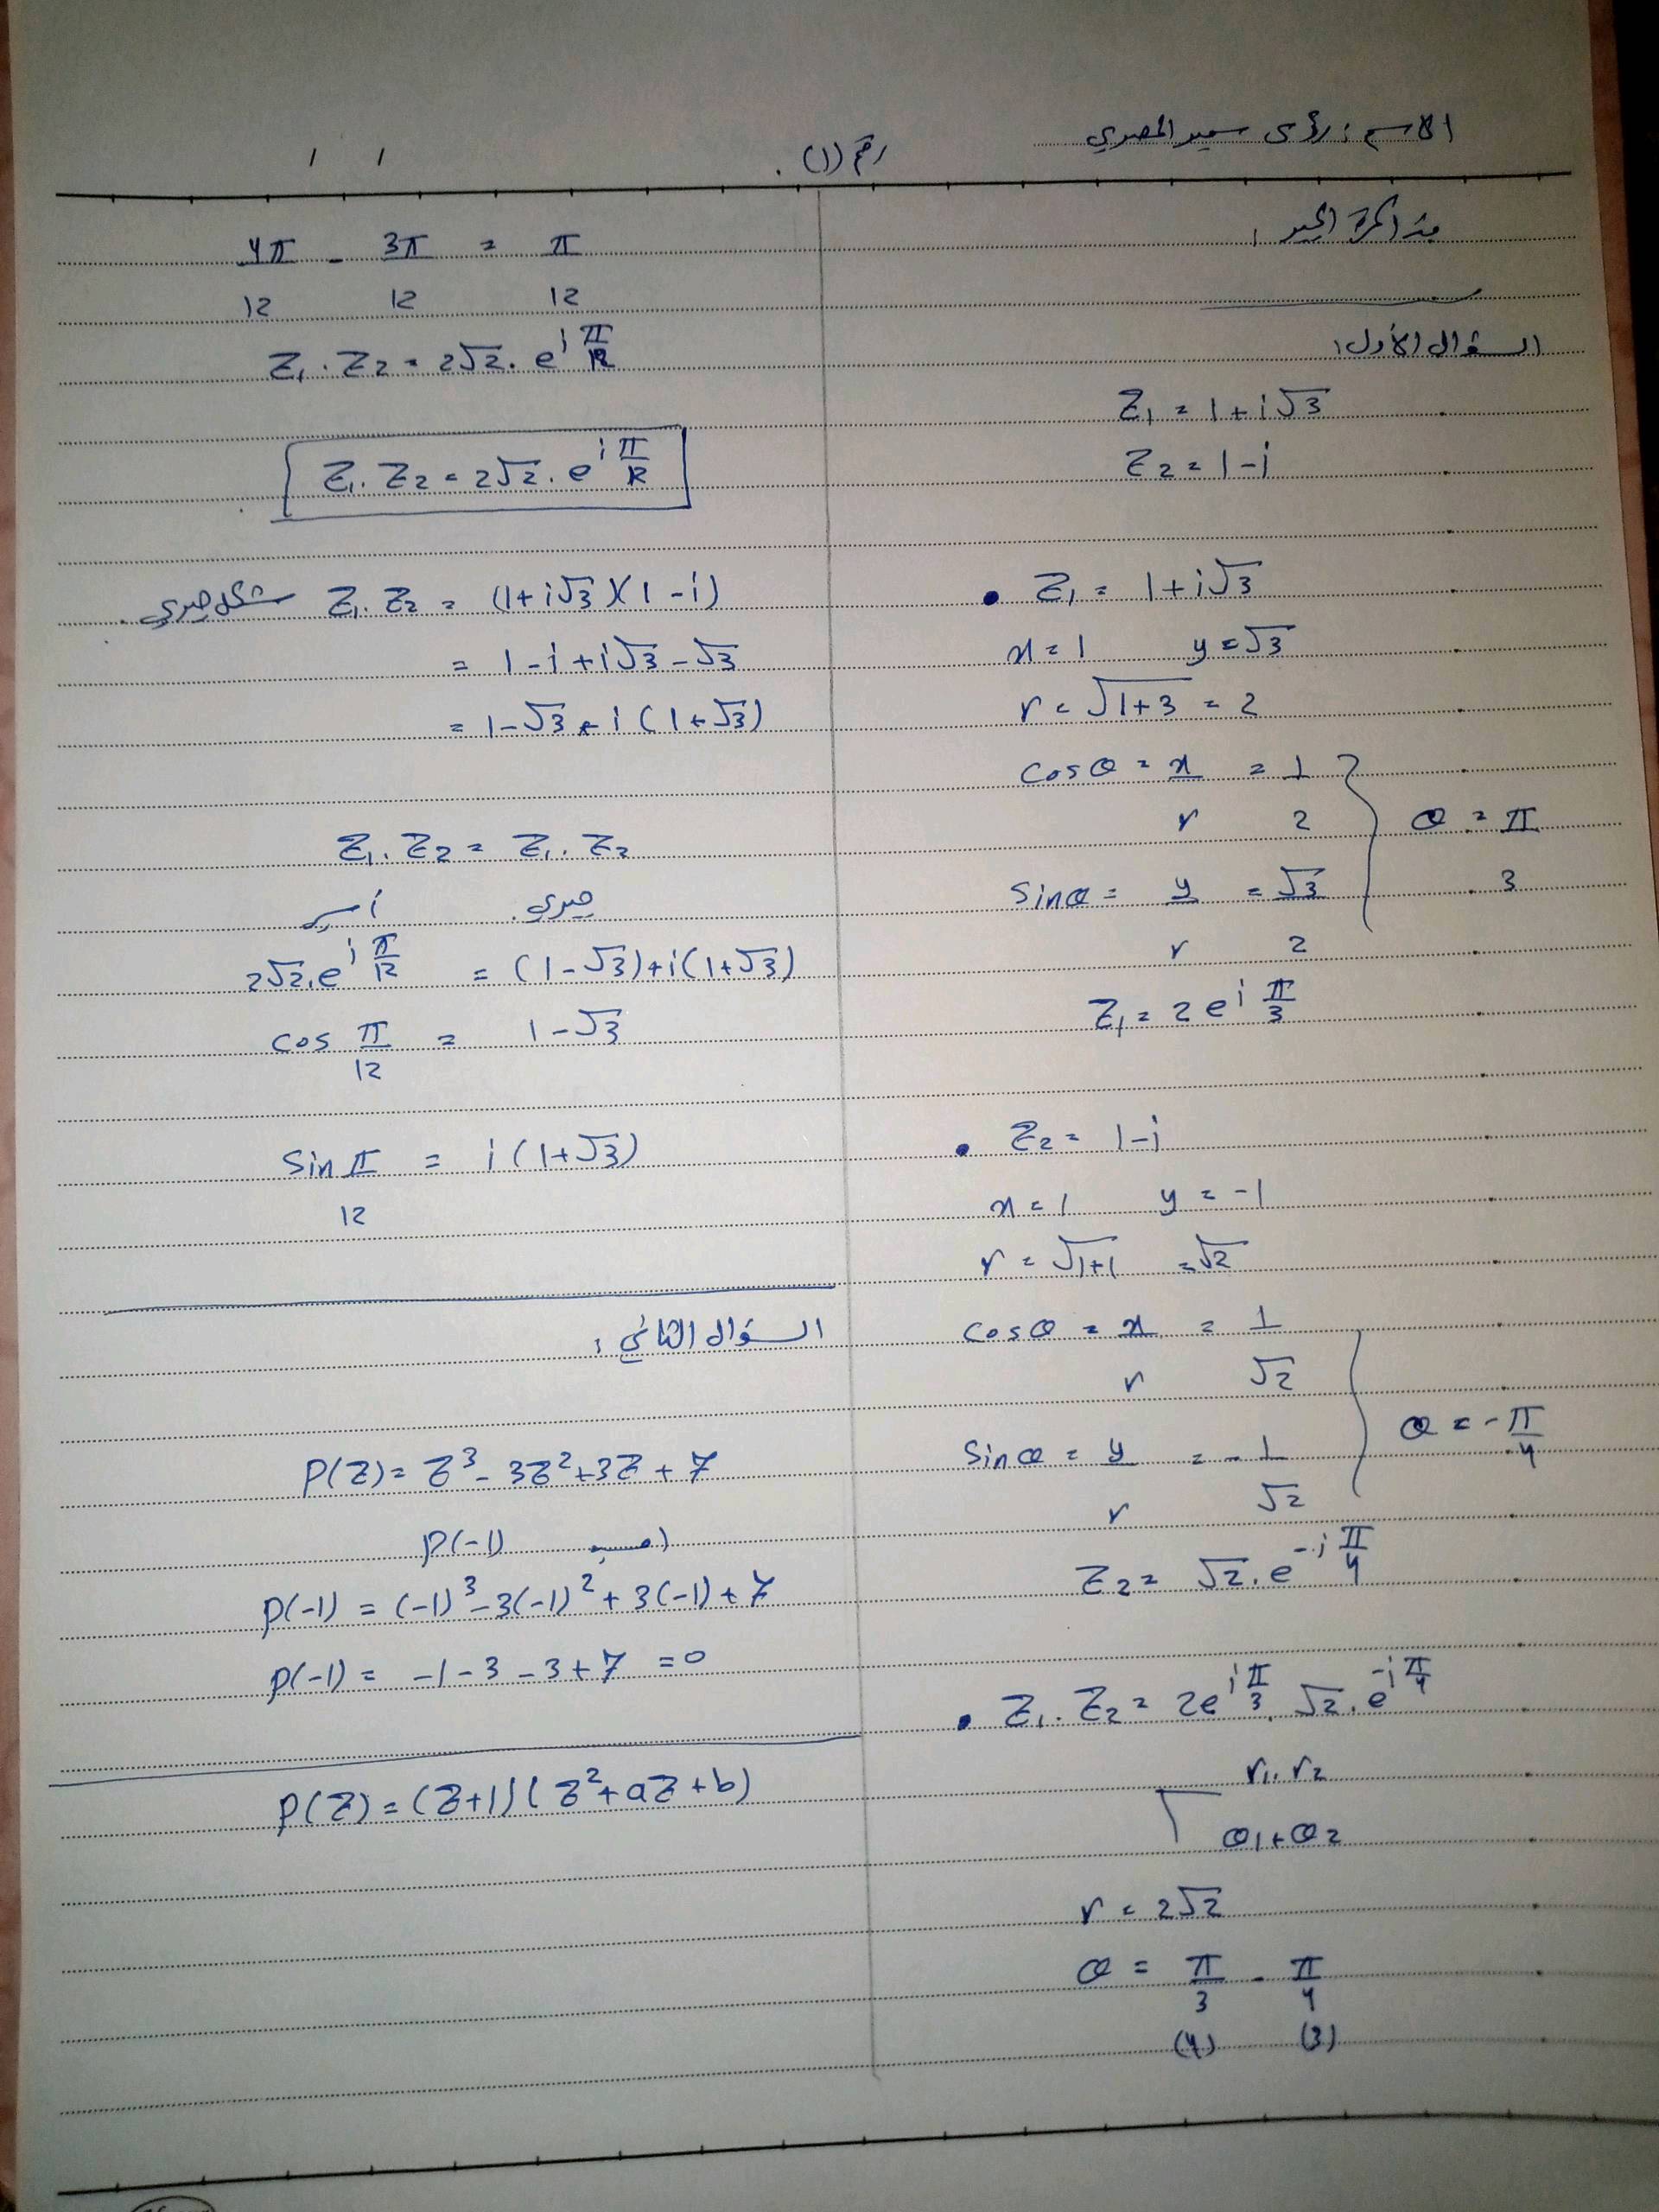 الاسم : رؤى سمير المصري
رقم (1)
/ /
مذاكرة الجبر :
السؤال الأول :
Z₁ = 1 + i√3
Z₂ = 1 - i
• Z₁ = 1 + i√3
x = 1 y = √3
r = √(1+3) = 2
cos θ = x/r = 1/2
θ = π/3
sin θ = y/r = √3/2
Z₁ = 2 e^(i π/3)
• Z₂ = 1 - i
x = 1 y = -1
r = √(1+1) = √2
cos θ = x/r = 1/√2
θ = -π/4
sin θ = y/r = -1/√2
Z₂ = √2 . e^(-i π/4)
• Z₁ . Z₂ = 2e^(i π/3) . √2 . e^(-i π/4)
r₁ . r₂
θ1 + θ2
r = 2√2
θ = π/3 - π/4
(4) (3)
4π/12 - 3π/12 = π/12
Z₁ . Z₂ = 2√2 . e^(i π/12)
Z₁ . Z₂ = 2√2 . e^(i π/12)
شكل جبري Z₁ . Z₂ = (1 + i√3)(1 - i)
= 1 - i + i√3 - √3
= 1 - √3 + i (1 + √3)
Z₁ . Z₂ = Z₁ . Z₂
أسي جبري
2√2 . e^(i π/12) = (1 - √3) + i(1 + √3)
cos π/12 = 1 - √3
sin π/12 = i (1 + √3)
السؤال الثاني :
P(Z) = Z³ - 3Z² + 3Z + 7
P(-1) احسب
P(-1) = (-1)³ - 3(-1)² + 3(-1) + 7
P(-1) = -1 - 3 - 3 + 7 = 0
P(Z) = (Z+1)(Z² + aZ + b)